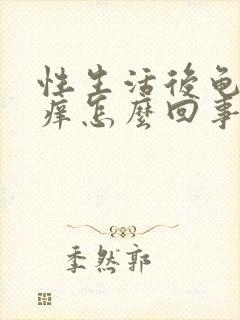 性生活後龟
痒怎麼回事
季然郭